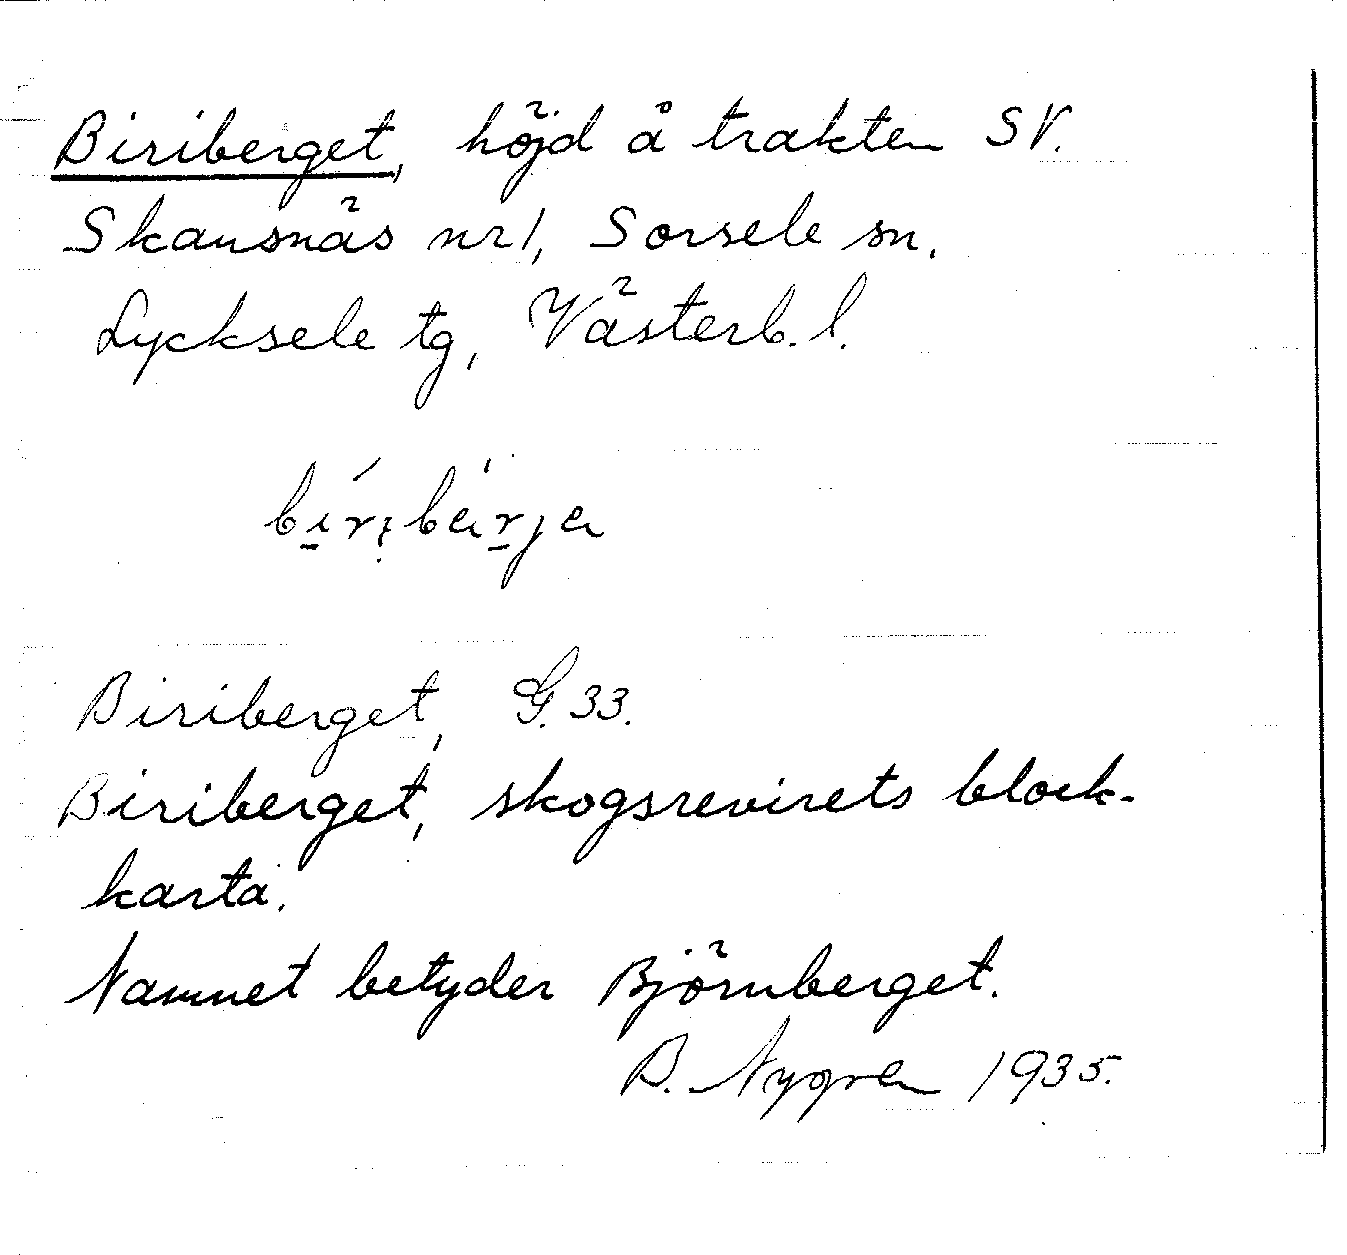 Biriberget, höjd å trakten SV.
Skansnäs nr 1, Sorsele sn.
Lycksele tg, Västerb. l.
Biriberget, G. 33.
Biriberget, skogsrevirets block-
karta.
Namnet betyder Björnberget.
B. Nygren 1935.